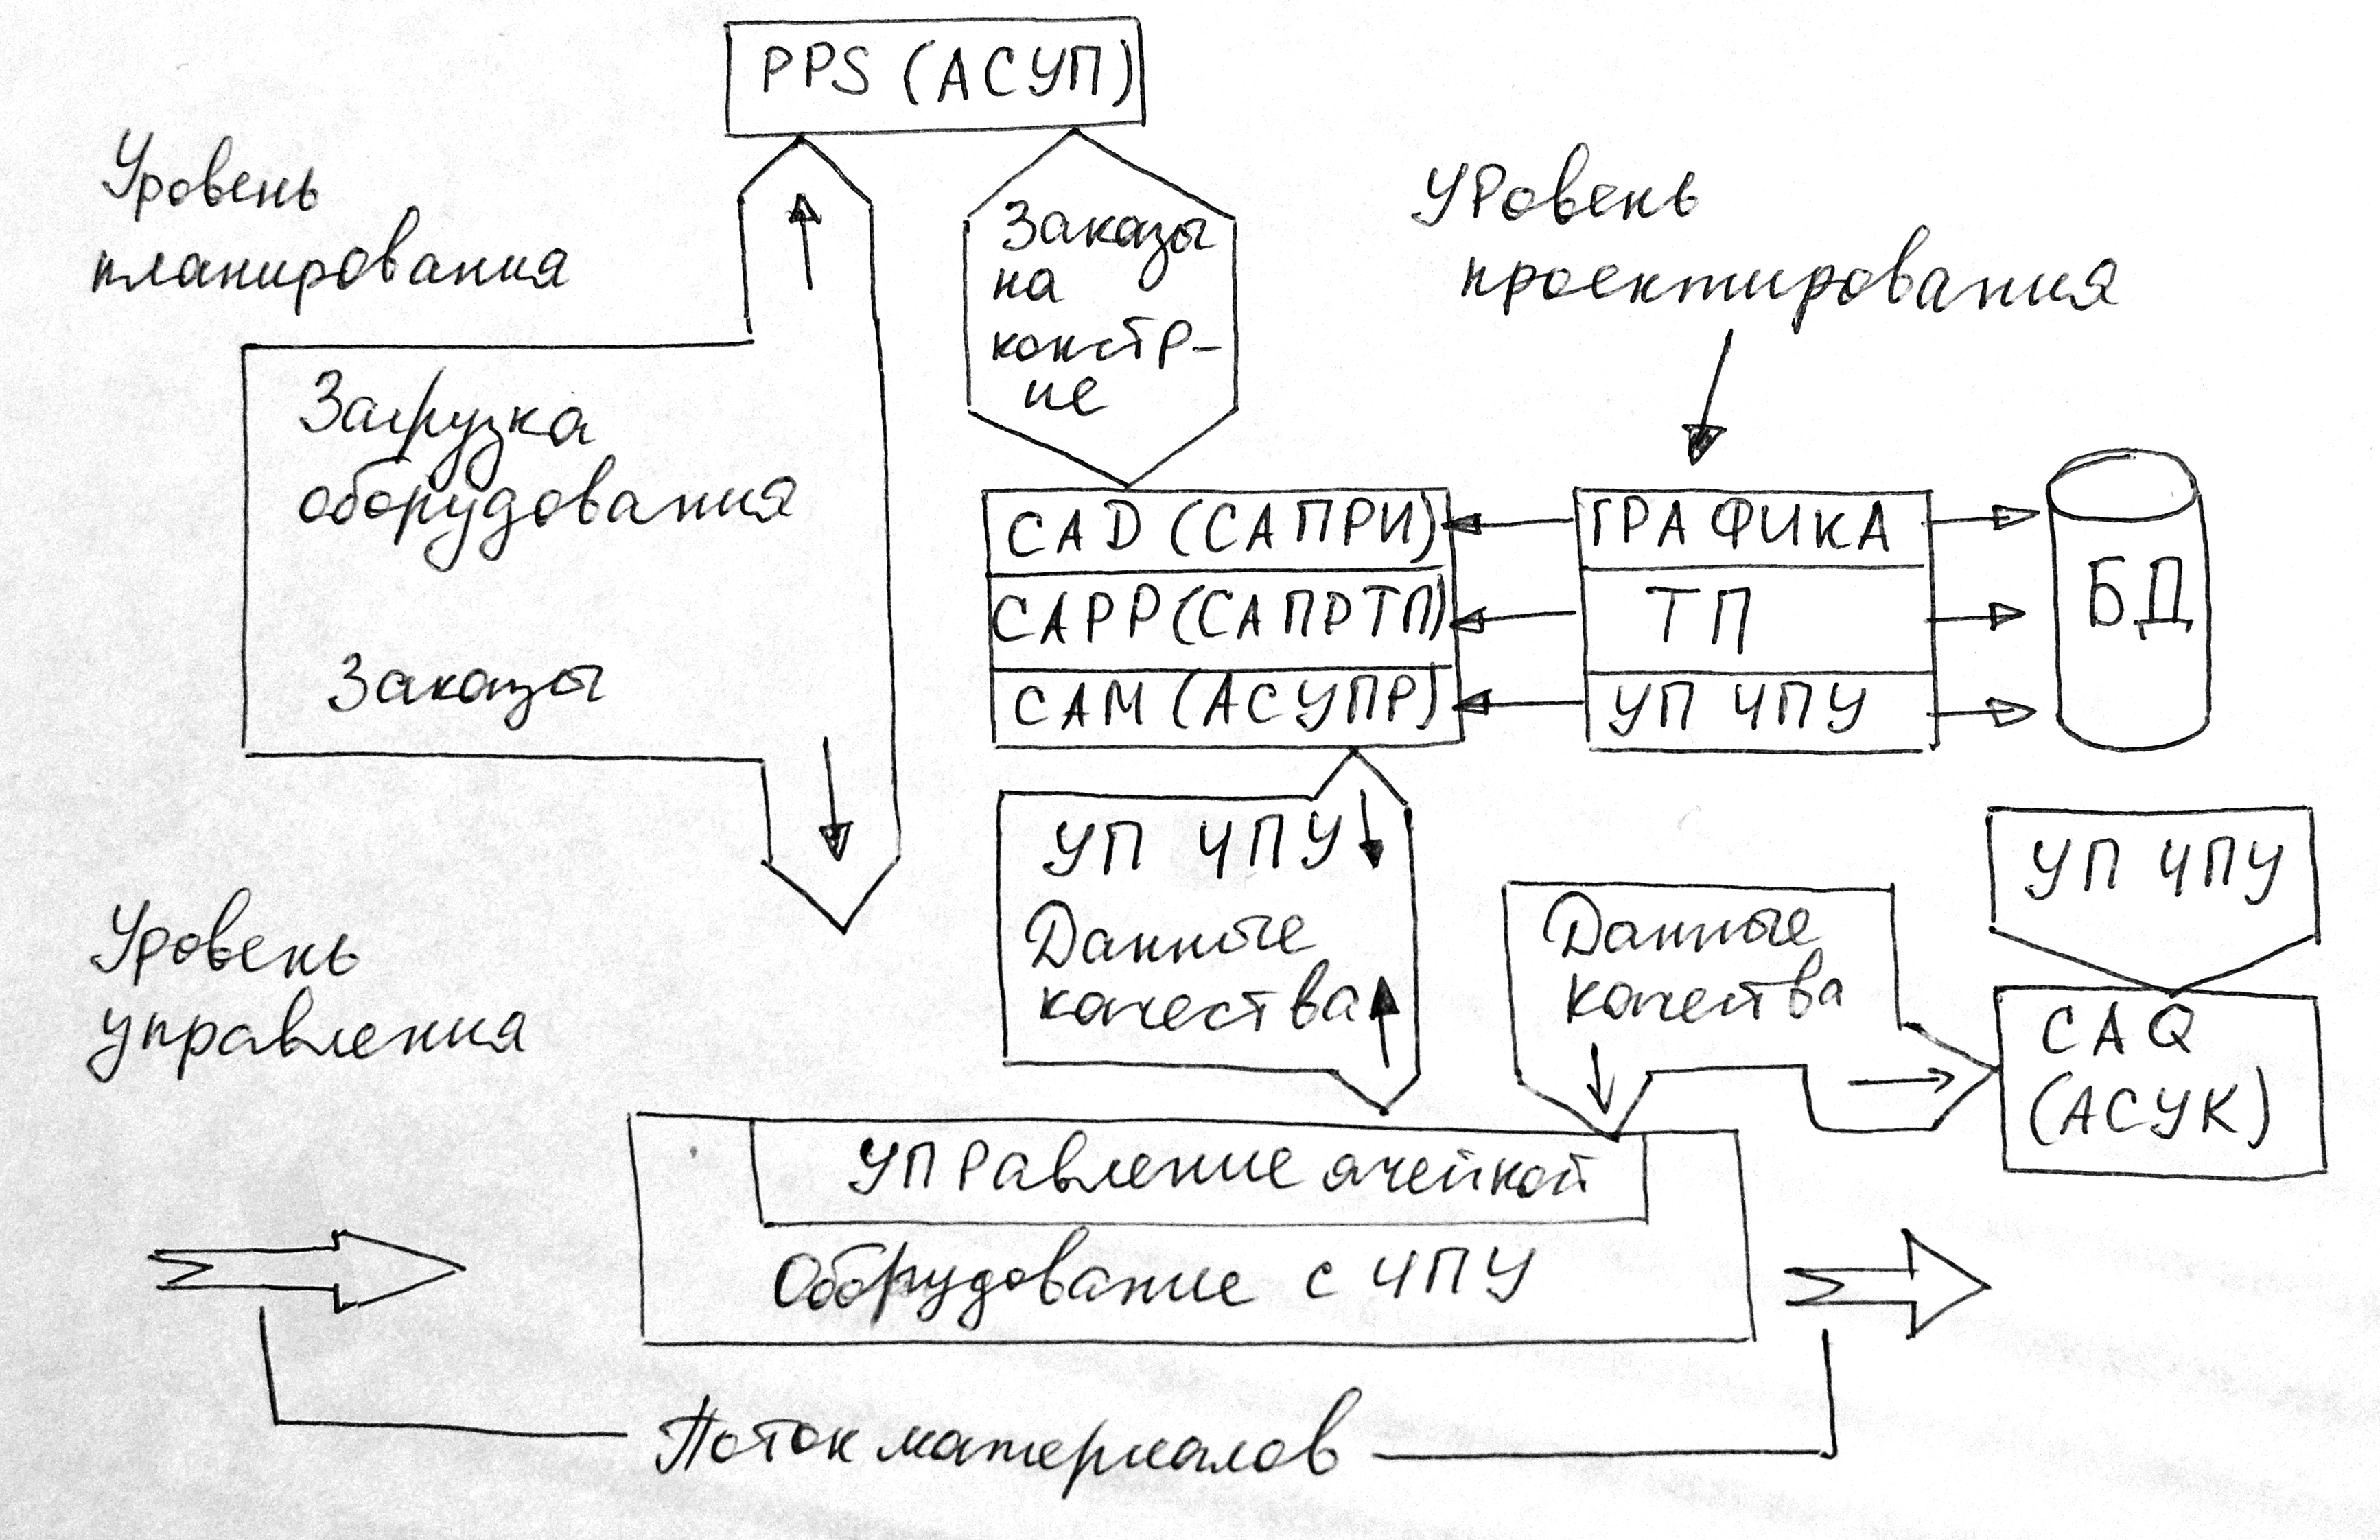 PPS (АСУП)
Уровень
планирования
Заказы
на
констр-
ие
Уровень
проектирования
Загрузка
оборудования
Заказы
CAD (САПРИ)
CAPP (САПРТП)
CAM (АСУПР)
ГРАФИКА
ТП
УП ЧПУ
БД
УП ЧПУ
Данные
качества
Данные
качества
УП ЧПУ
CAQ
(АСУК)
Уровень
управления
Управление ячейкой
Оборудование с ЧПУ
Поток материалов